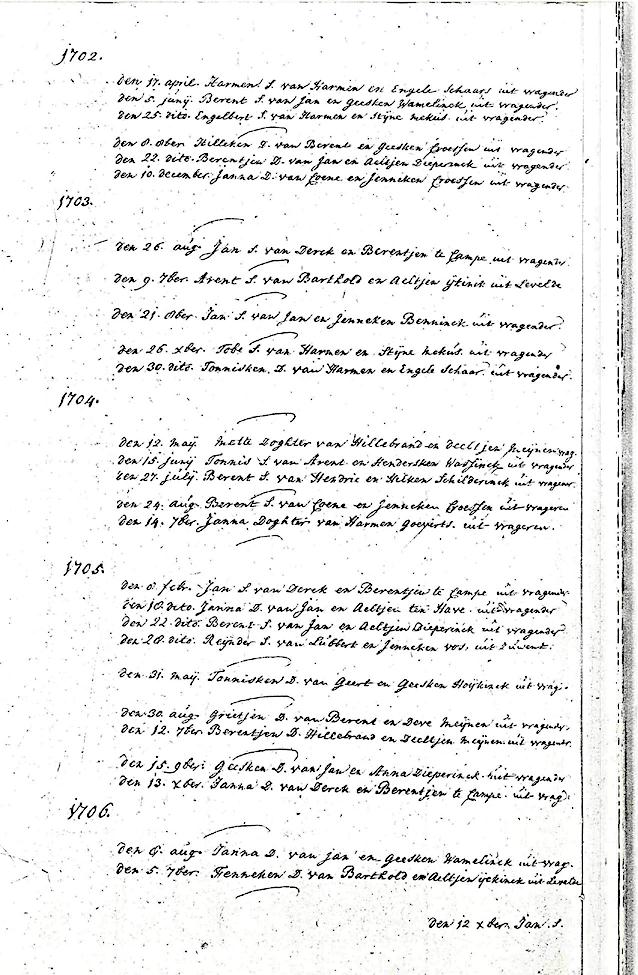 1702.
den 17. april. Harmen S. van Harmen en Engele Schaars uit vragender
den 5. junij Berent S. van Jan en Geesken Wamelinck uit vragender.
den 25. dito. Engelbert S. van Harmen en Stijne mekus. uit vragender.
den 8. 8ber Hilleken D. van Berent en Geesken Croessen uit vragender
den 22. dito. Berentjen D. van Jan en Aeltjen Dieperinck uit vragender
den 10. december. Janna D. van Coene en Jenneken Croessen uit vragender.
1703.
den 26. aug. Jan S. van Derck en Berentjen te Campe uit vragender
den 9. 7ber. Arent S. van Barthold en Aeltjen ijkinck uit Levelde
den 21. 8ber Jan S. van Jan en Jenneken Benninck uit vragender.
den 26. xber. Tobe S. van Harmen en Stijne mekus. uit vragender
den 30. dito. Tonnisken. D. van Harmen en Engele Schaar. uit vragender.
1704.
den 12. maij Mette Doghter van Hillebrand en Deeltjen Meijnen vrag.
den 15. junij Tonnis S. van Arent en Hendersken Wassinck uit vragender
den 27. julij Berent S. van Hendric en Hilken Schilderinck uit vragender.
den 24. aug. Berent S. van Coene en Jenneken Croessen uit vrageren
den 14. 7ber. Janna Doghter van Harmen Goeijerts. uit vrageren.
1705.
den 8. febr. Jan S. van Derck en Berentjen te Campe uit vragender
den 18. dito. Janna D. van Jan en Aeltjen ten Have. uit vragender
den 22. dito. Berent S. van Jan en Aeltjen Dieperinck uit vragender
den 28. dito. Reijnder S. van Lubbert en Jenneken vos, uit
den 31. maij. Tonnisken D. van Geert en Geesken Hoijkinck uit vrag.
den 30. aug. Grietjen D. van Berent en Deve Meijnen uit vragender.
den 12. 7ber Berentjen D. Hillebrand en Deeltjen Meijnen uit vragender.
den 15. 9ber: Geesken D. van Jan en Anna Dieperinck uit vragender
den 13. xber. Janna D. van Derck en Berentjen te Campe. uit vrag:
1706.
den 8. aug. Janna D. van jan en Geesken Wamelinck uit vrag.
den 5. 7ber. Henneken D. van Barthold en Aeltjen ijckinck uit Levelde
den 12 xber. Jan. S.